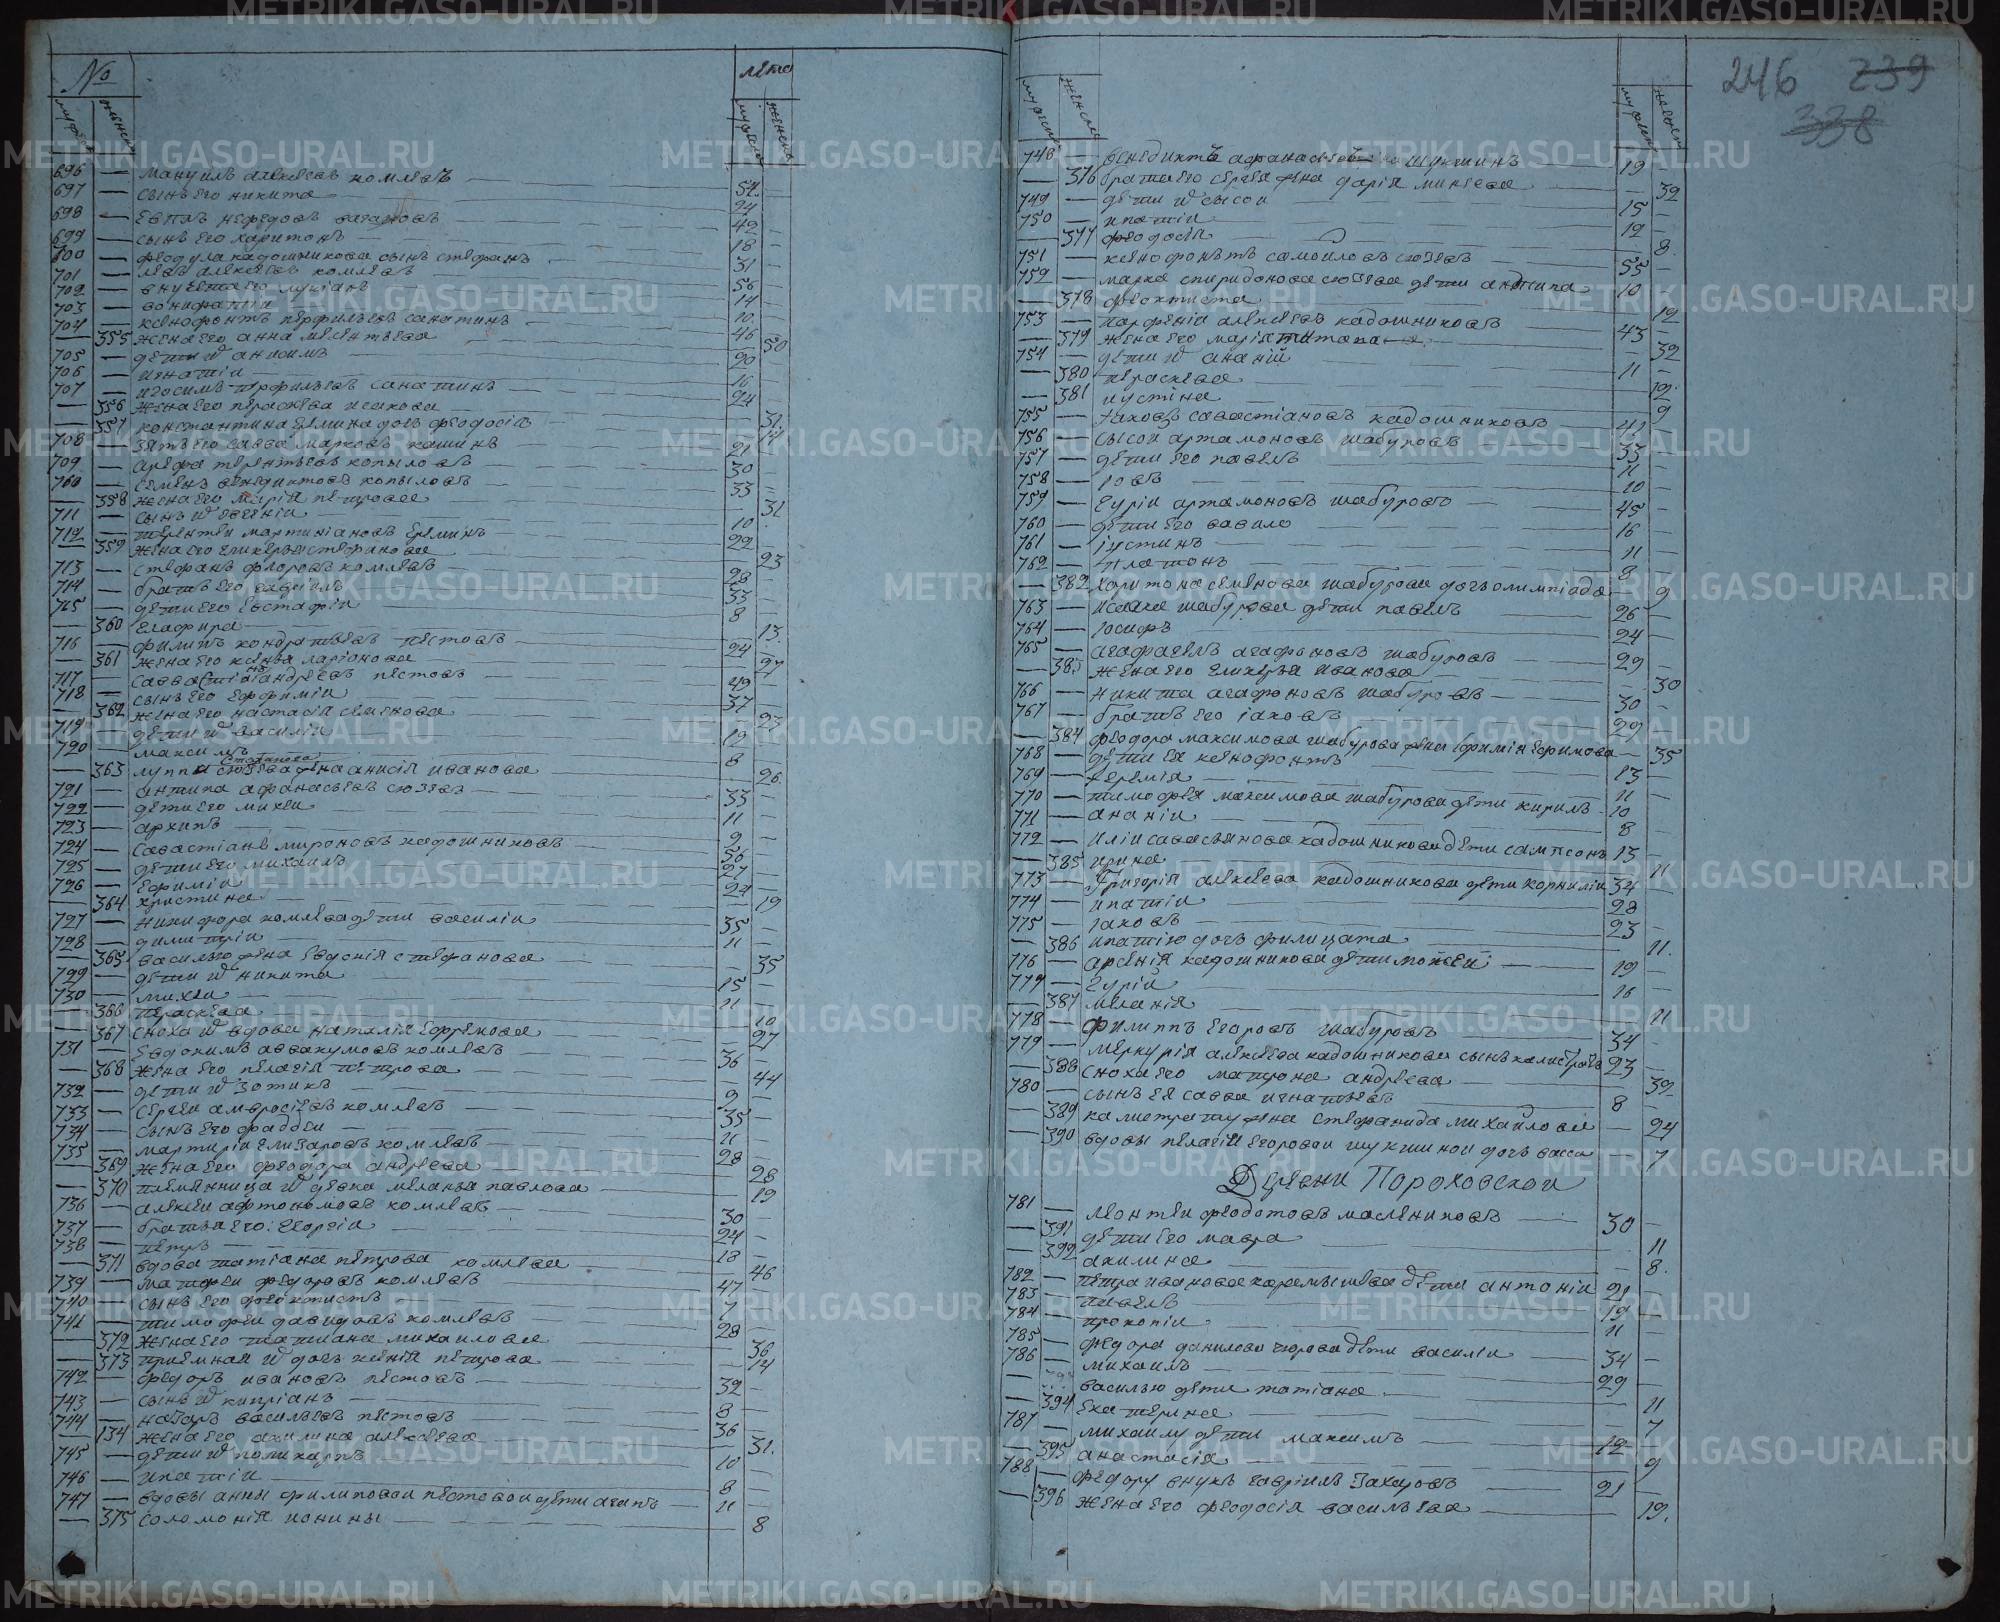 № лета
мужеск женск мужеск женск
696 — Мануилъ алексеевъ комлевъ — 52 —
697 — сынъ его никита — 24 —
698 — Евтпъ нефедовъ — 42 —
699 — сынъ его харитонъ — 18 —
700 — феодула кадошникова сынъ стефанъ — 31 —
701 — левъ алексеевъ комлевъ — 56 —
702 — внучета его лукианъ — 14 —
703 — вонифатии — 10 —
704 — ксенофонтъ перфильевъ санатинъ — 46 —
— 355 жена его анна — 50
705 — дети ихъ анисимъ — 20 —
706 — игнатии — 16 —
707 — изосимъ перфильевъ санатинъ — 24 —
— 356 жена его параскева исакова — 31
— 357 константина еремина дочь феодосiя — 14
708 — зять его савва марковъ кашинъ — 21 —
709 — арефа терентьевъ копыловъ — 30 —
760 — семенъ венедиктовъ копыловъ — 33 —
— 358 жена его марiя петрова — 31
711 — сынъ ихъ евгенiи — 10 —
712 — терентеи мартинiановъ ереминъ — 22 —
— 359 жена его гликерья стефанова — 23
713 — стефанъ федоровъ комлевъ — 28 —
714 — братъ его гаврiилъ — 33 —
715 — дети его евстафiи — 8 —
— 360 глафира — 13
716 — филипъ кондратьевъ пестовъ — 24 —
— 361 жена его ксенья ларiонова — 27
717 — савастiянъ андреевъ пестовъ — 49 —
718 — сынъ его ефимiи — 37 —
— 362 жена его настасiя семенова — 23
719 — дети ихъ василiи — 12 —
720 — максимъ — 8 —
— 363 луппа стахиева сюзева жена анисiя иванова — 26
721 — антипа афанасьевъ сюзевъ — 33 —
722 — дети его михеи — 11 —
723 — архипъ — 9 —
724 — савастiанъ мироновъ кадошниковъ — 56 —
725 — дети его михаилъ — 27 —
726 — ефимiи — 22 —
— 364 христина — 19
727 — никифора комлева дети василiи — 35 —
728 — димитрiи — 11 —
— 365 василью жена евдокiя стефанова — 35
729 — дети ихъ никита — 15 —
730 — михеи — 11 —
— 366 параскева — 10
— 367 сноха ихъ вдова наталiя ефремова — 27
731 — евдокимъ аввакумовъ комлевъ — 36 —
— 368 жена его пелагiя петрова — 44
732 — дети ихъ зотикъ — 9 —
733 — сергеи амвросiевъ комлевъ — 35 —
734 — сынъ его фаддеи — 11 —
735 — мартирiи елизаровъ комлевъ — 28 —
— 369 жена его феодора андреева — 28
— 370 племянница ихъ девка меланья павлова — 19
736 — алексеи афтономовъ комлевъ — 30 —
737 — братья его: георгiи — 24 —
738 — петръ — 18 —
— 371 вдова татiана петрова комлева — 46
739 — матфеи федоровъ комлевъ — 47 —
740 — сынъ его феоктистъ — 7 —
741 — тимофеи давидовъ комлевъ — 28 —
— 372 жена его татиана михаилова — 36
— 373 приемная ихъ дочь ксенiя петрова — 14
742 — федоръ ивановъ пестовъ — 32 —
743 — сынъ ихъ кипрiанъ — 8 —
744 — назаръ васильевъ пестовъ — 36 —
— 134 жена его акилина алексеева — 31
745 — дети ихъ поликарпъ — 10 —
746 — ипатiи — 8 —
747 — вдовы анны филиповои пестовои дети агапъ — 11 —
— 375 соломонiя ионины — 8
246 239
338
мужеск женск мужеск женск
748 — венедиктъ афанасьевъ шукшинъ — 19 —
— 376 брата его сергея жена дарiя минеева — 32
749 — дети ихъ сысои — 15 —
750 — ипатiи — 12 —
— 377 феодосiя — 8
751 — ксенофонтъ самоиловъ сюзевъ — 55 —
752 — марка спиридонова сюзева дети антипа — 10 —
— 378 феоктиста — 12
753 — парфенiи алексеевъ кадошниковъ — 43 —
— 379 жена его марiя — 32
754 — дети ихъ ананiй — 11 —
— 380 параскева — 12
— 381 иустина — 9
755 — iаковъ савастiановъ кадошниковъ — 41 —
756 — сысои артамоновъ шабуровъ — 33 —
757 — дети его павелъ — 11 —
758 — iовъ — 10 —
759 — гурiи артамоновъ шабуровъ — 45 —
760 — дети его вавило — 16 —
761 — iустинъ — 11 —
762 — платонъ — 8 —
— 382 харитона семенова шабурова дочь олимпiада — 9
763 — исаака шабурова дети павелъ — 26 —
764 — iосифъ — 24 —
765 — агафагелъ агафоновъ шабуровъ — 29 —
— 383 жена его гликерья иванова — 30
766 — никита агафоновъ шабуровъ — 30 —
767 — братъ его iаковъ — 29 —
— 384 феодора максимова шабурова жена ефимiя ефимова — 35
768 — дети ея ксенофонтъ — 13 —
769 — iеремiя — 11 —
770 — тимофея максимова шабурова дети кирилъ — 10
771 — ананiи — 8 —
772 — илiи савасьянова кадошникова дети сампсонъ 13 —
— 385 ирина — 11
773 — Григорiя алексеева кадошникова дети корнилiи 34 —
774 — ипатiи — 28
775 — iаковъ — 23 —
— 386 ипатiю дочь филицата — 11.
776 — арсенiя кадошникова дети моисеи — 19 —
777 — гурiй — 16 —
— 387 меланiя — 11
778 — Филиппъ егоровъ шабуровъ — 34 —
779 — меркурiя алексеева кадошникова сынъ калистратъ 23 —
— 388 сноха его матрона андреева — 39
780 — сынъ ея савва игнатьевъ — 8 —
— 389 калистрату жена стефанида михаилова — 24
— 390 вдовы пелагiи егоровои шукшинои дочь васса — 7
Деревни Пороховскои
781 — леонтеи федотовъ маслениковъ — 30 —
— 391 дети его мавра — 11
— 392 акилина — 8.
782 — петра иванова карамышева дети антонiи 21 —
783 — павелъ — 19 —
784 — прокопiи — 11 —
785 — федора данилова дети василiи — 34 —
786 — михаилъ — 29 —
— василью дети татiана — 11
— 394 екатерина — 7
787 — михаилу дети максимъ — 12 —
— 395 анастасiя — 9
788 — федору внукъ гаврiилъ Захаровъ — 21 —
— 396 жена его феодосiя васильева — 19.